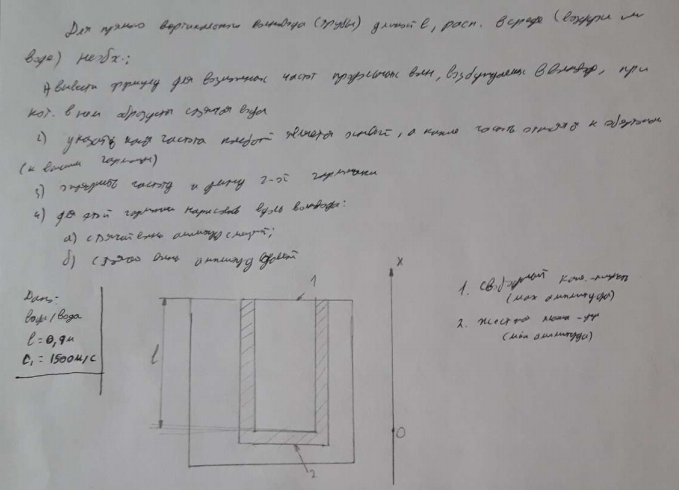 Для прямого вертикального волновода (трубы) длиной l, расп. в среде (воздухе или
воде) необх.:
1) вывести формулу для возможных частот продольных волн, возбуждаемых в волноводе, при
кот. в нем образуются стоячая волна
2) указать какая частота колебаний является основной, а какие частоты относятся к обертонам
(к высшим гармоникам)
3) определить частоту и длину 2-ой гармоники
4) для этой гармоники нарисовать вдоль волновода:
а) стоячей волны амплитуд смещений;
б) стоячую волну амплитуд
Дано:
воздух/вода
l = 0,9м
C₁ = 1500м/с
1
l
2
x
0
1. свободный конец -
(max амплитуда)
2. жестко
(min амплитуда)